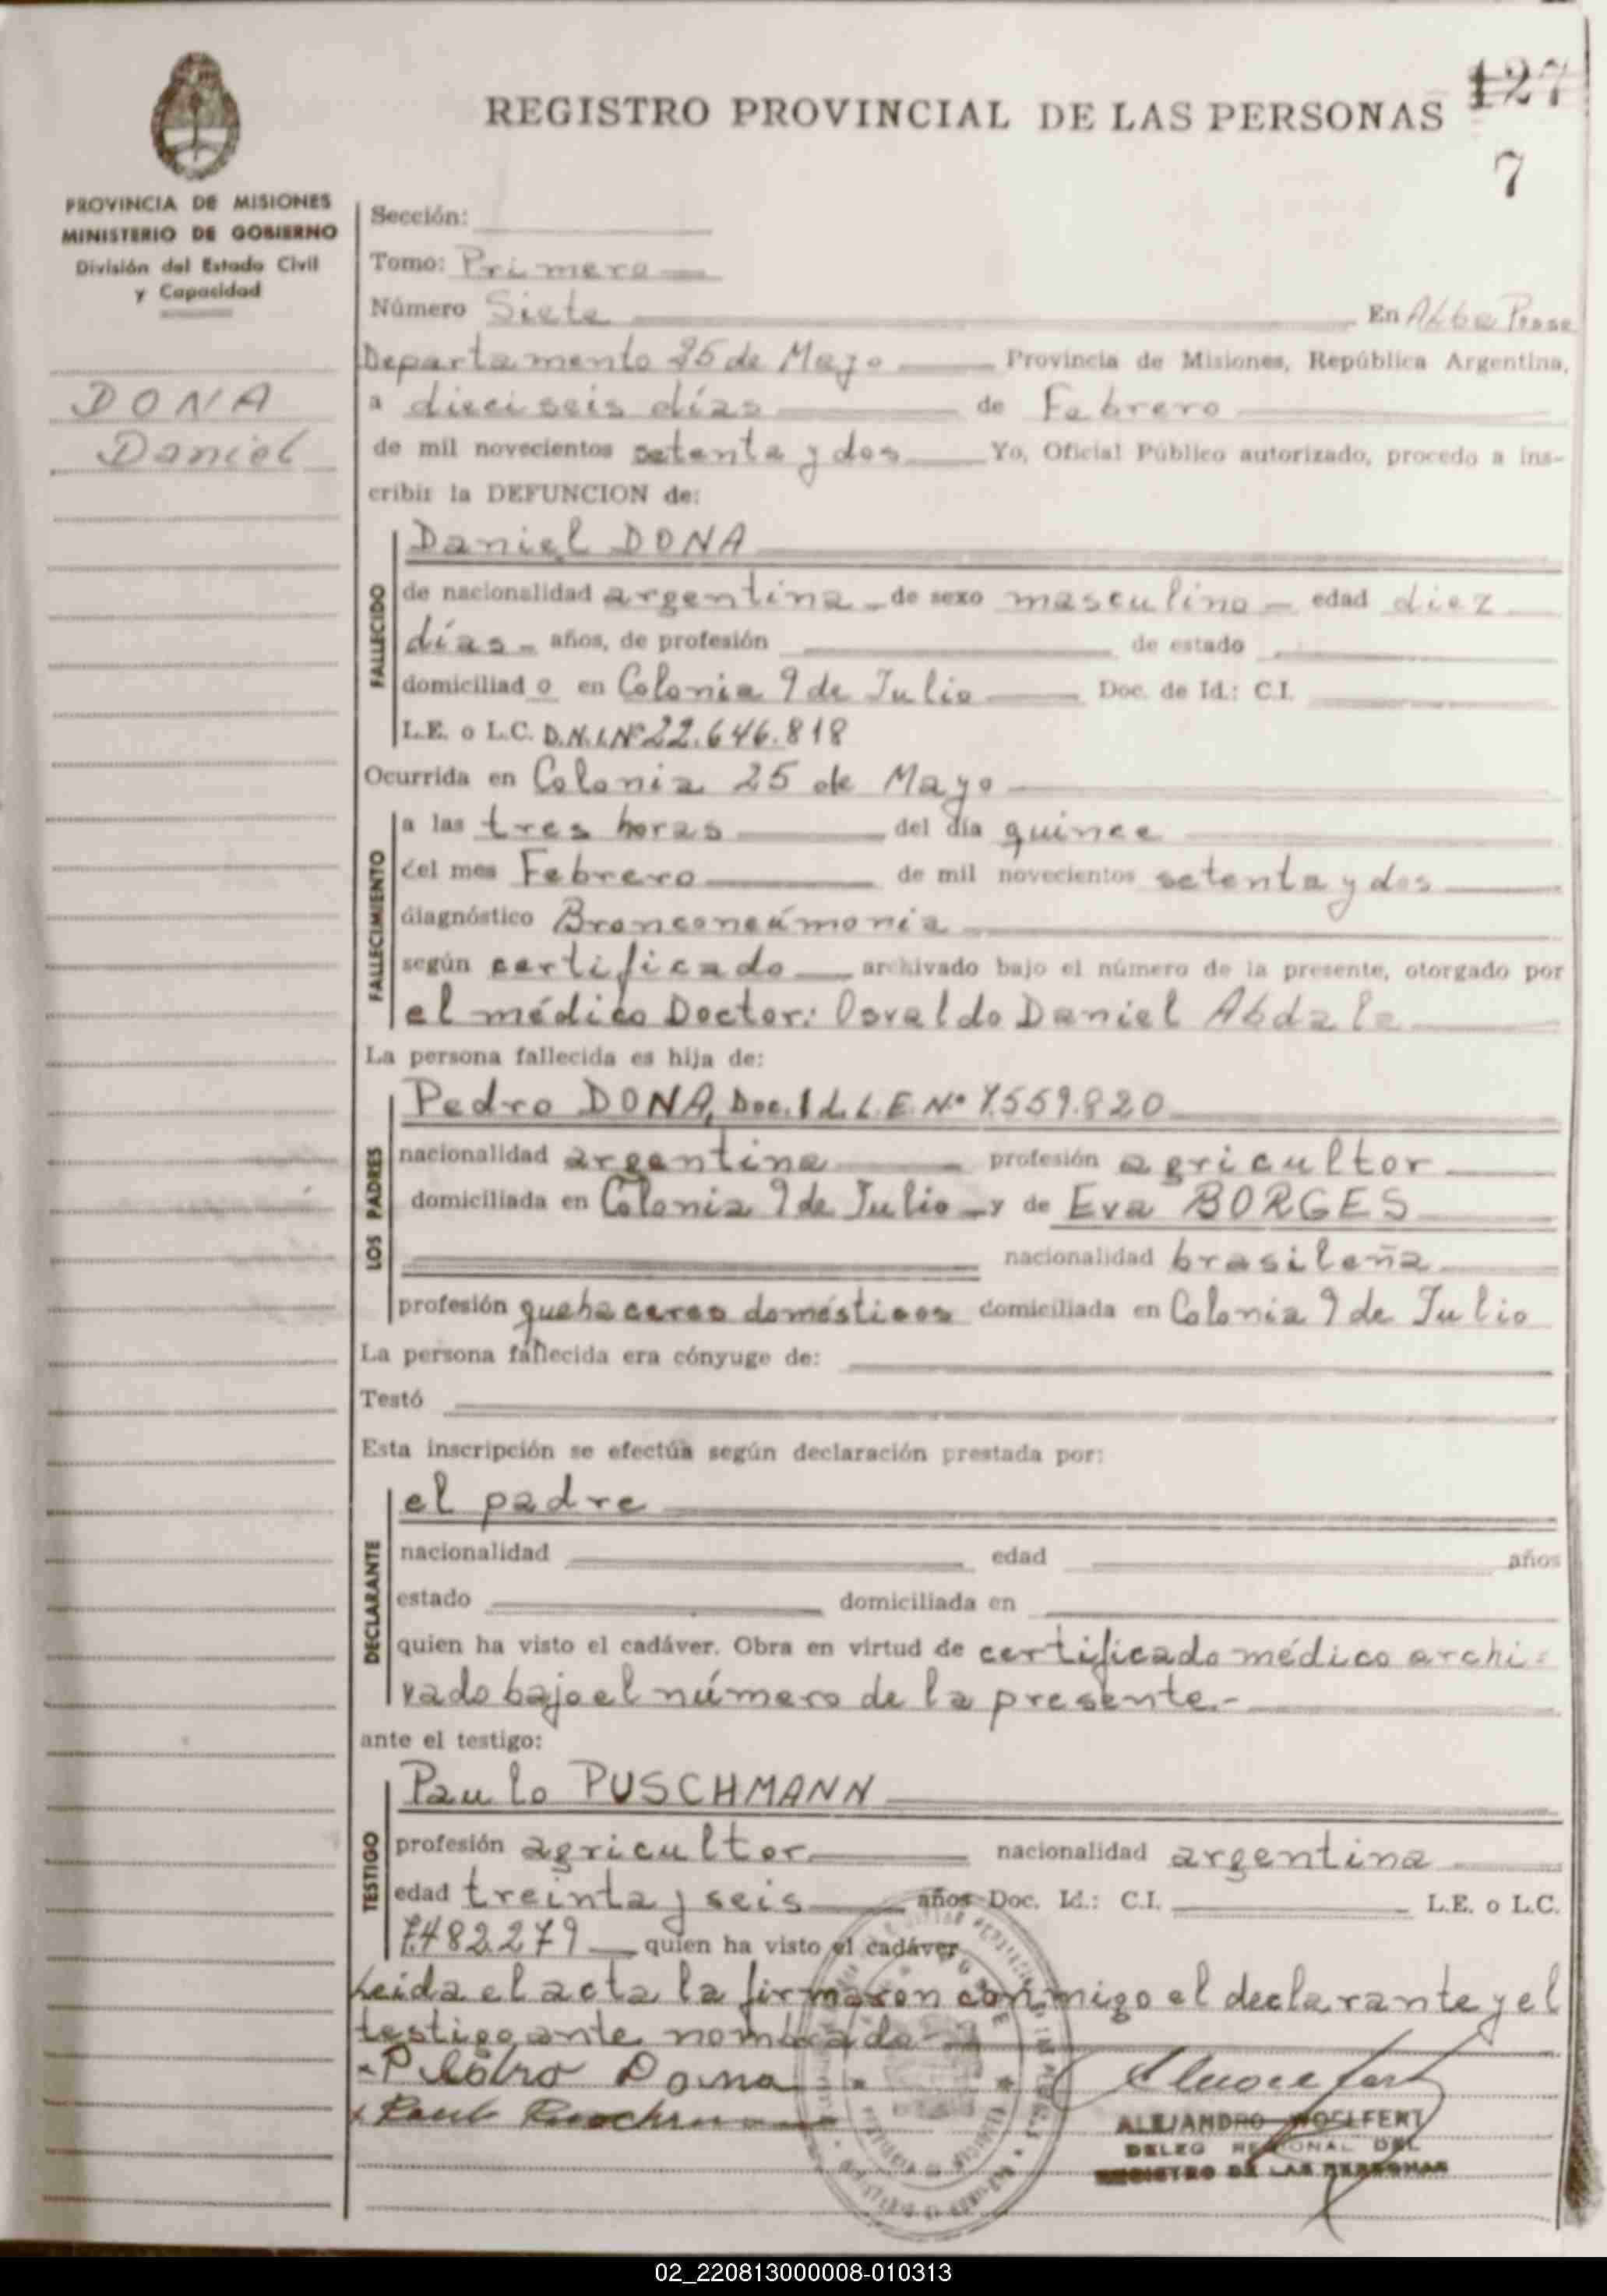 127
REGISTRO PROVINCIAL DE LAS PERSONAS
7
PROVINCIA DE MISIONES
MINISTERIO DE GOBIERNO
División del Estado Civil
y Capacidad
DONA
Daniel
Sección:
Tomo: Primero
Número Siete En Alba Posse
Departamento 25 de Mayo Provincia de Misiones, República Argentina,
a dieciseis días de Febrero
de mil novecientos setenta y dos Yo, Oficial Público autorizado, procedo a ins-
cribir la DEFUNCION de:
FALLECIDO
Daniel DONA
de nacionalidad argentina de sexo masculino edad diez
días años, de profesión de estado
domiciliad o en Colonia 9 de Julio Doc. de Id.: C.I.
L.E. o L.C. D.N.I. Nº 22.646.818
Ocurrida en Colonia 25 de Mayo
FALLECIMIENTO
a las tres horas del día quince
del mes Febrero de mil novecientos setenta y dos
diagnóstico Bronconeúmonia
según certificado archivado bajo el número de la presente, otorgado por
el médico Doctor: Osvaldo Daniel Abdala
La persona fallecida es hija de:
LOS PADRES
Pedro DONA, Doc. Id. L.E. Nº 7.559.820
nacionalidad argentina profesión agricultor
domiciliada en Colonia 9 de Julio y de Eva BORGES
nacionalidad brasileña
profesión quehaceres domésticos domiciliada en Colonia 9 de Julio
La persona fallecida era cónyuge de:
Testó
Esta inscripción se efectúa según declaración prestada por:
DECLARANTE
el padre
nacionalidad edad años
estado domiciliada en
quien ha visto el cadáver. Obra en virtud de certificado médico archi-
vado bajo el número de la presente.-
ante el testigo:
TESTIGO
Paulo PUSCHMANN
profesión agricultor nacionalidad argentina
edad treinta y seis años Doc. Id.: C.I. L.E. o L.C.
7.482.279 quien ha visto el cadáver
Leida el acta la firmaron conmigo el declarante y el
testigo ante nombrado
Pedro Dona
ALEJANDRO WOELFERT
DELEG REGIONAL DEL
REGISTRO DE LAS PERSONAS
02_220813000008-010313